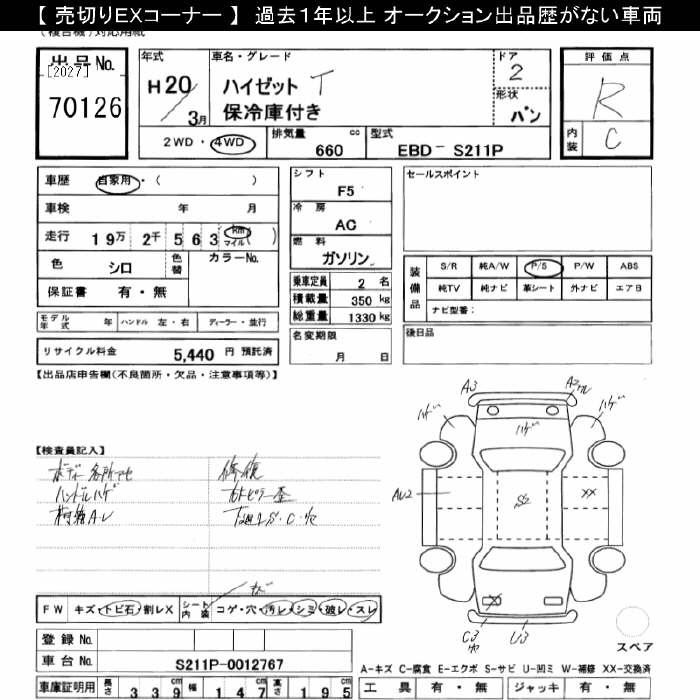 【 売切りEXコーナー 】 過去1年以上 オークション出品歴がない車両
(複合機)対応用紙
出品No.
[2027]
70126
年式
H20
3月
車名・グレード
ハイゼット T
保冷庫付き
ドア
2
形状
バン
評価点
R
内装
C
2WD・4WD
排気量
660
cc
型式
EBD- S211P
車歴 自家用・( )
車検 年 月
走行 19万 2千563 Km マイル( )
色 シロ 色替 カラーNo.
保証書 有・無
モデル年式 年 ハンドル 左・右 ディーラー・並行
リサイクル料金 5,440 円 預託済
シフト
F5
冷房
AC
燃料
ガソリン
乗車定員 2 名
積載量 350 kg
総重量 1330 kg
名変期限
月 日
セールスポイント
装備品
S/R 純A/W P/S P/W ABS
純TV 純ナビ 革シート 外ナビ エアB
ナビ型番:
後日品
【出品店申告欄(不良箇所・欠品・注意事項等)】
【検査員記入】
ボディー各所アセ
ハンドルハゲ
荷箱A・U
修復
下廻りS・C・穴
A3
ハゲ
ハゲ
ハゲ
AU2
S2
XX
X
C3
穴
U3
スペア
FW キズ・トビ石・割レX
シート内装 コゲ・穴・汚レ・シミ・破レ・スレ
登録 No.
車台 No. S211P-0012767
車庫証明用 長さ 339 cm 幅 147 cm 高さ 195 cm
A-キズ C-腐食 E-エクボ S-サビ U-凹ミ W-補修 XX-交換済
工具 有・無 ジャッキ 有・無